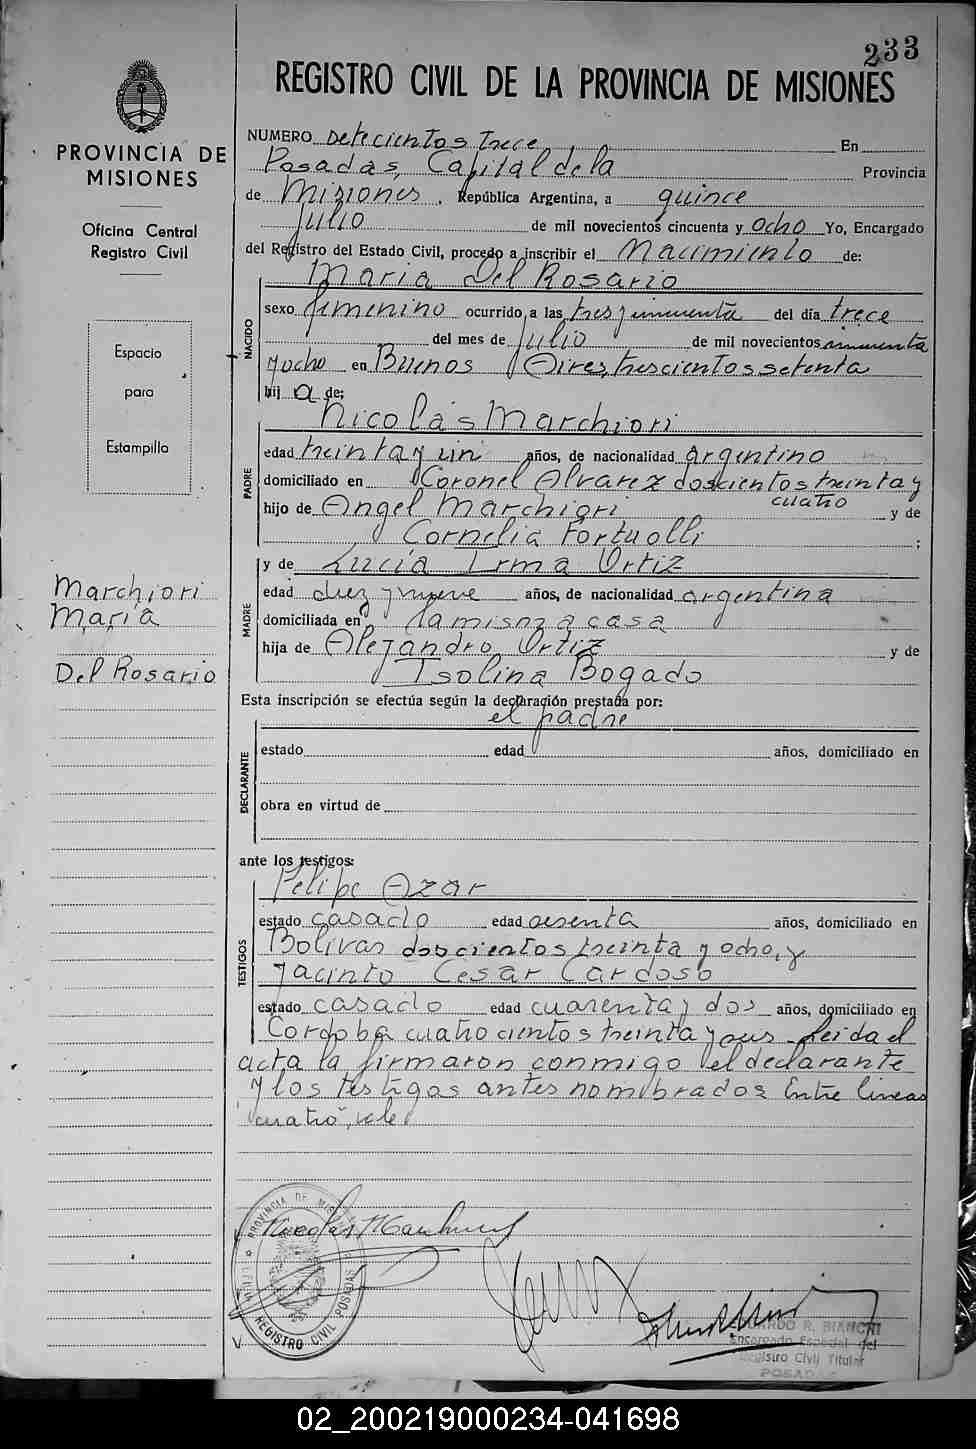 233
REGISTRO CIVIL DE LA PROVINCIA DE MISIONES
PROVINCIA DE
MISIONES
Oficina Central
Registro Civil
Espacio
para
Estampilla
Marchiori
María
Del Rosario
NUMERO Setecientos trece En
Posadas, Capital de la Provincia
de Misiones, República Argentina, a quince
Julio de mil novecientos cincuenta y ocho Yo, Encargado
del Registro del Estado Civil, procedo a inscribir el Nacimiento de:
NACIDO
Maria Del Rosario
sexo femenino ocurrido a las tres y cincuenta del día trece
del mes de Julio de mil novecientos cincuenta
y ocho en Buenos Aires, trescientos setenta
hij a de:
PADRE
Nicolás Marchiori
edad treinta y un años, de nacionalidad argentino
domiciliado en Coronel Alvarez doscientos treinta y
cuatro
hijo de Angel Marchiori y de
Cornelia Fortuolli ;
MADRE
y de Lucía Irma Ortiz
edad diez y nueve años, de nacionalidad argentina
domiciliada en la misma casa
hija de Alejandro Ortiz y de
Isolina Bogado
Esta inscripción se efectúa según la declaración prestada por:
el padre
DECLARANTE
estado edad años, domiciliado en
obra en virtud de
ante los testigos:
TESTIGOS
Felipe Azar
estado casado edad sesenta años, domiciliado en
Bolivar doscientos treinta y ocho, y
Jacinto Cesar Cardoso
estado casado edad cuarenta y dos años, domiciliado en
Cordoba cuatrocientos treinta y Leida el
acta la firmaron conmigo el declarante
y los testigos antes nombrados Entre lineas
"cuatro", vale
Nicolás Marchiori
PROVINCIA DE MISIONES
REGISTRO CIVIL POSADAS
EDUARDO R. BIANCHI
Encargado Especial del
Registro Civil Titular
POSADAS
02_200219000234-041698